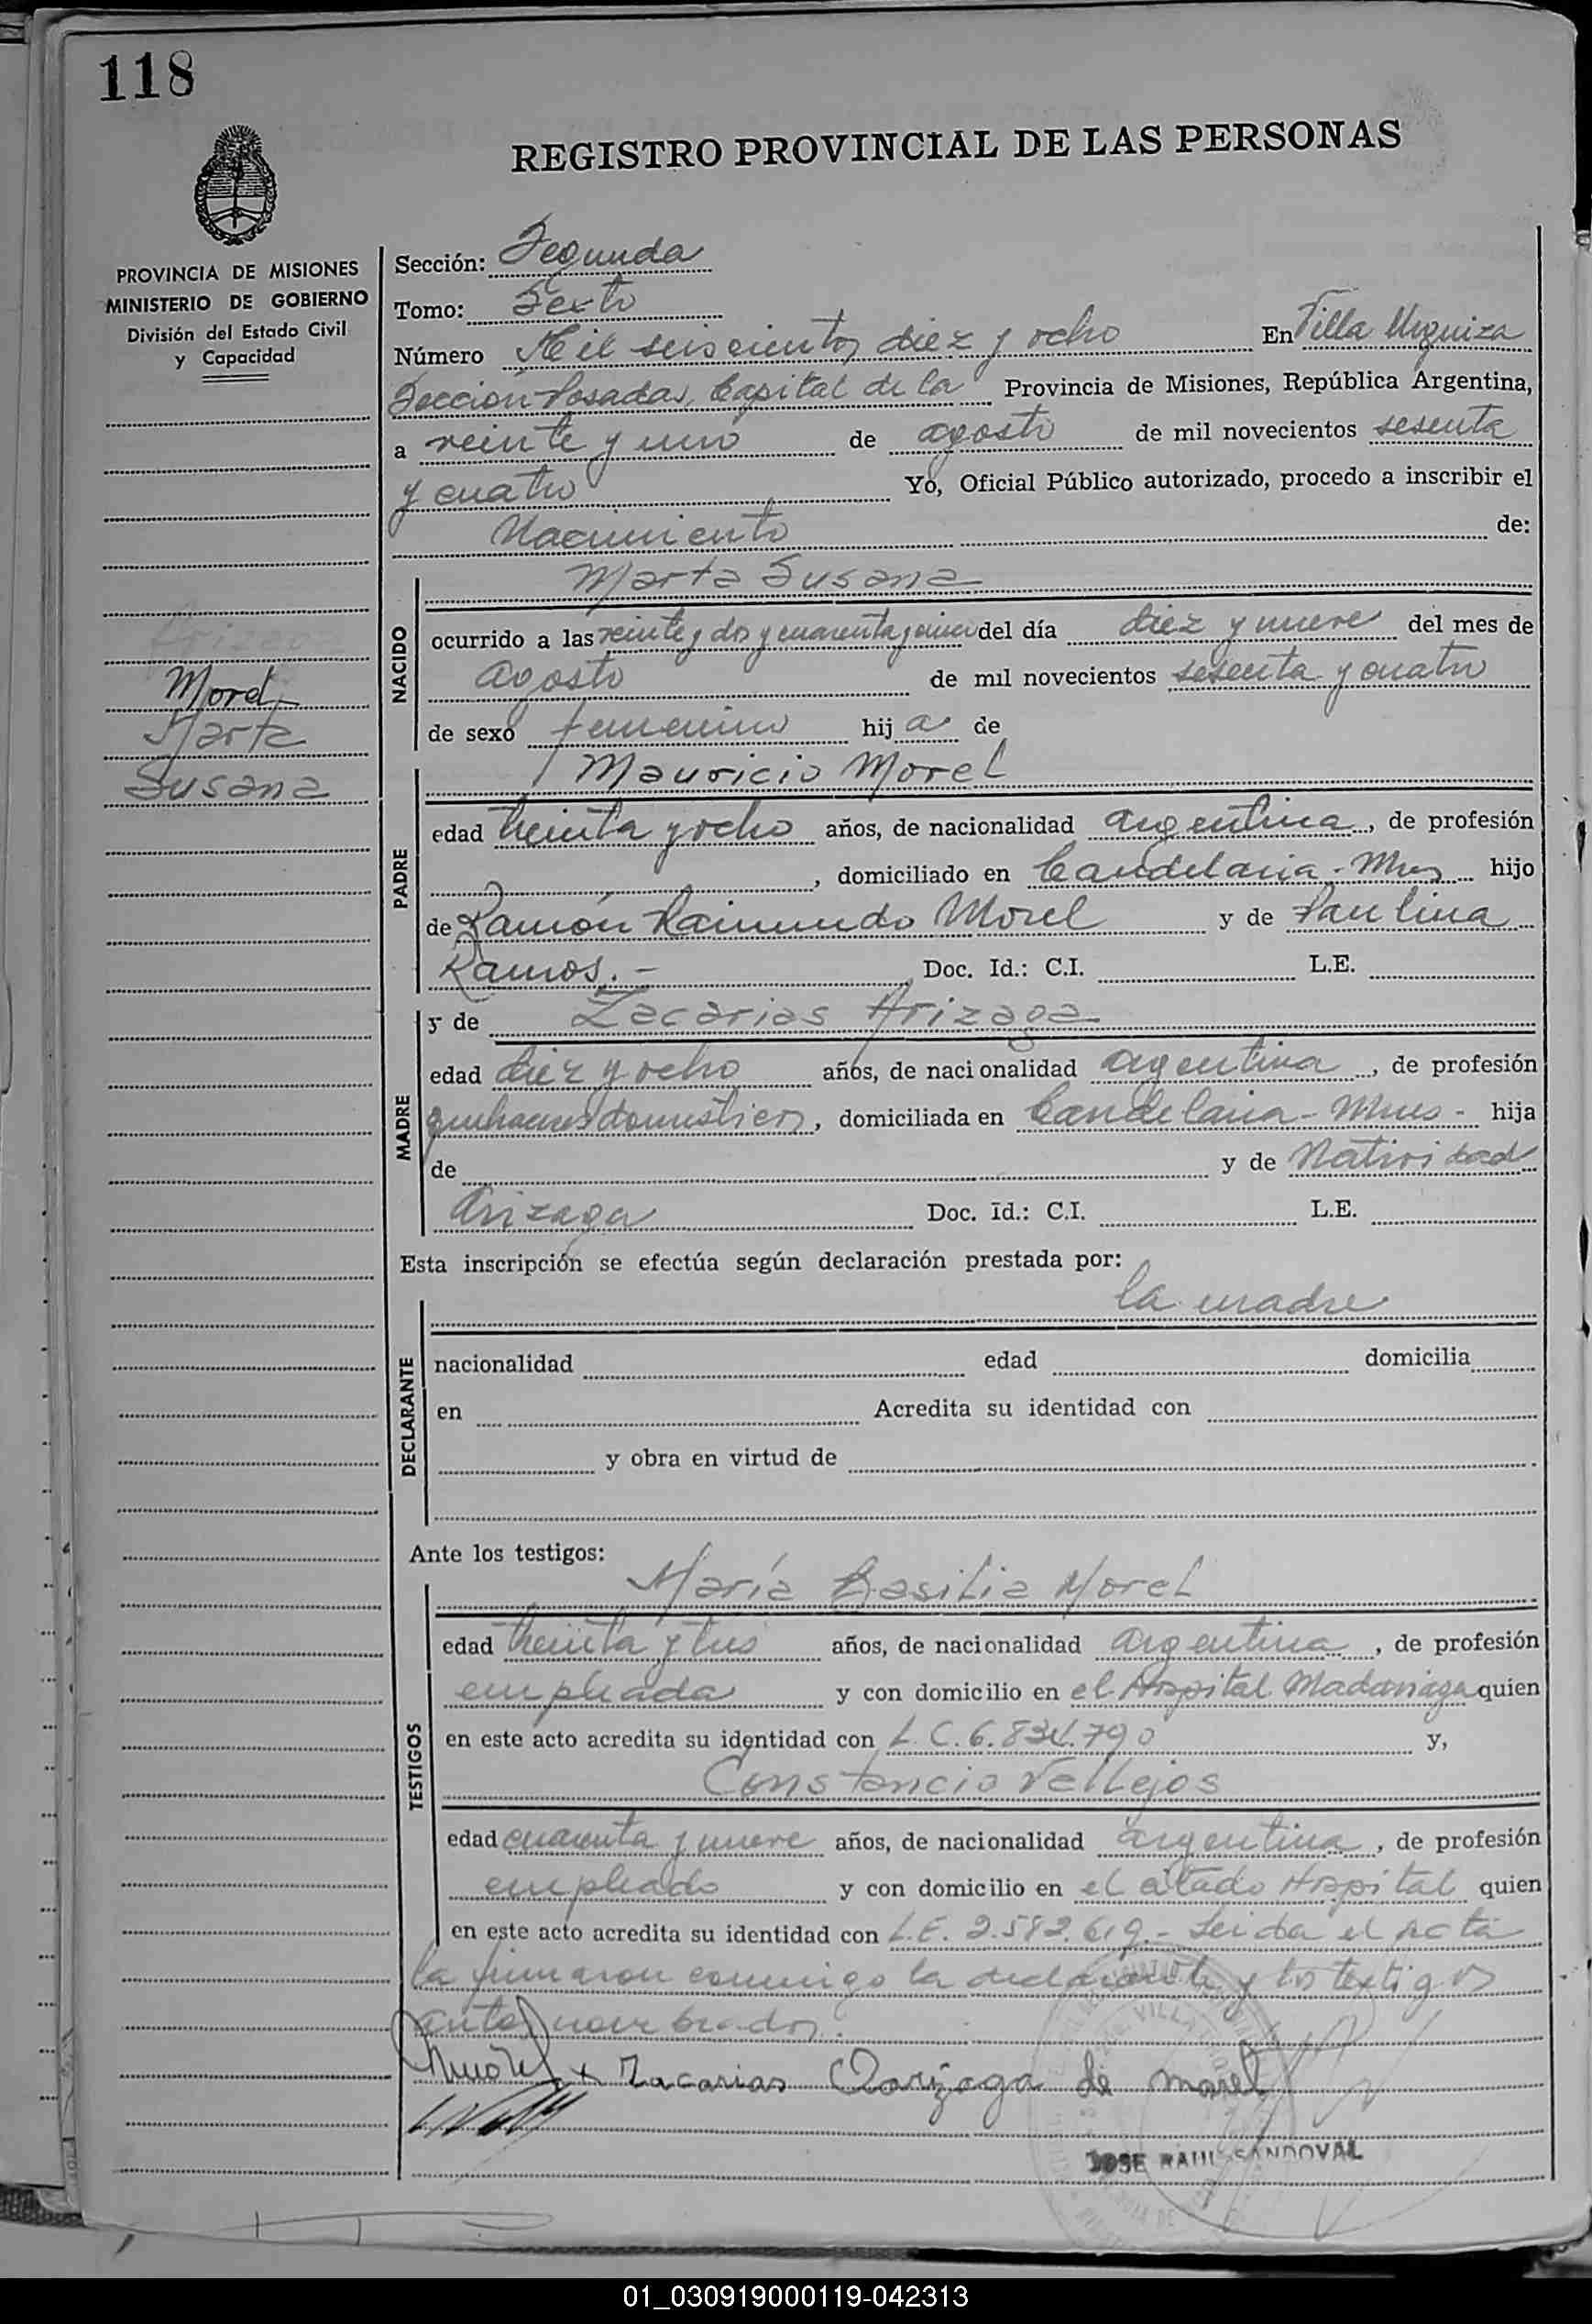 118
REGISTRO PROVINCIAL DE LAS PERSONAS
PROVINCIA DE MISIONES
MINISTERIO DE GOBIERNO
División del Estado Civil
y Capacidad
Morel
Marta
Susana
Sección: Segunda
Tomo: Sexto
Número Mil seiscientos diez y ocho En Villa Urquiza
Sección Posadas, Capital de la Provincia de Misiones, República Argentina,
a veinte y uno de agosto de mil novecientos sesenta
y cuatro Yo, Oficial Público autorizado, procedo a inscribir el
Nacimiento de:
Marta Susana
NACIDO
ocurrido a las veinte y dos y cuarenta y cinco del día diez y nueve del mes de
agosto de mil novecientos sesenta y cuatro
de sexo femenino hija de
Mauricio Morel
PADRE
edad treinta y ocho años, de nacionalidad argentina, de profesión
, domiciliado en Candelaria - Mnes hijo
de Ramón Raimundo Morel y de Paulina
Ramos. - Doc. Id.: C.I. L.E.
y de Zacarias Arizaga
MADRE
edad diez y ocho años, de nacionalidad argentina, de profesión
quehaceres domésticos, domiciliada en Candelaria - Mnes - hija
de y de Natividad
Arizaga Doc. Id.: C.I. L.E.
Esta inscripción se efectúa según declaración prestada por:
la madre
DECLARANTE
nacionalidad edad domicilia
en Acredita su identidad con
y obra en virtud de
Ante los testigos:
María Basilia Morel
TESTIGOS
edad treinta y tres años, de nacionalidad argentina, de profesión
empleada y con domicilio en el Hospital Madariaga quien
en este acto acredita su identidad con L.C. 6.834.790 y,
Constancio Vellejos
edad cuarenta y nueve años, de nacionalidad argentina, de profesión
empleado y con domicilio en el citado Hospital quien
en este acto acredita su identidad con L.E. 2.582.619.- Leida el acta
la firmaron conmigo la declarante y los testigos
antes nombrados.
Zacarias Darizaga de morel
JOSE RAUL SANDOVAL
01_030919000119-042313